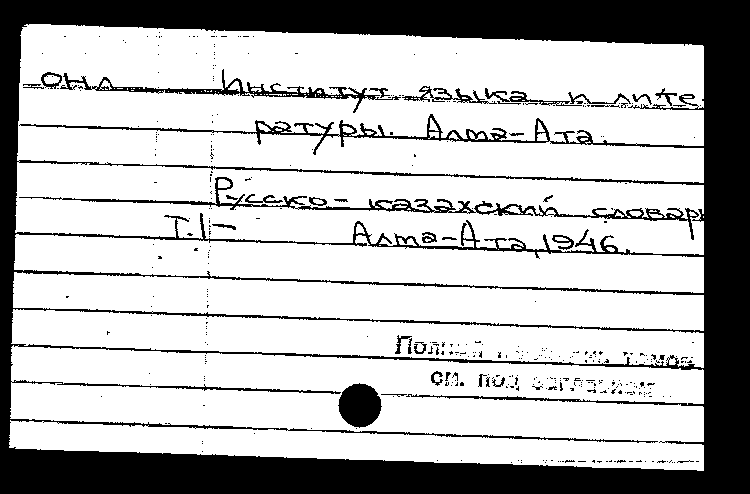 ОНЛ Институт языка и лите-
ратуры. Алма-Ата.
Русско-казахский словарь
Т.1- Алма-Ата, 1946.
Полный перечень томов
см. под заглавием